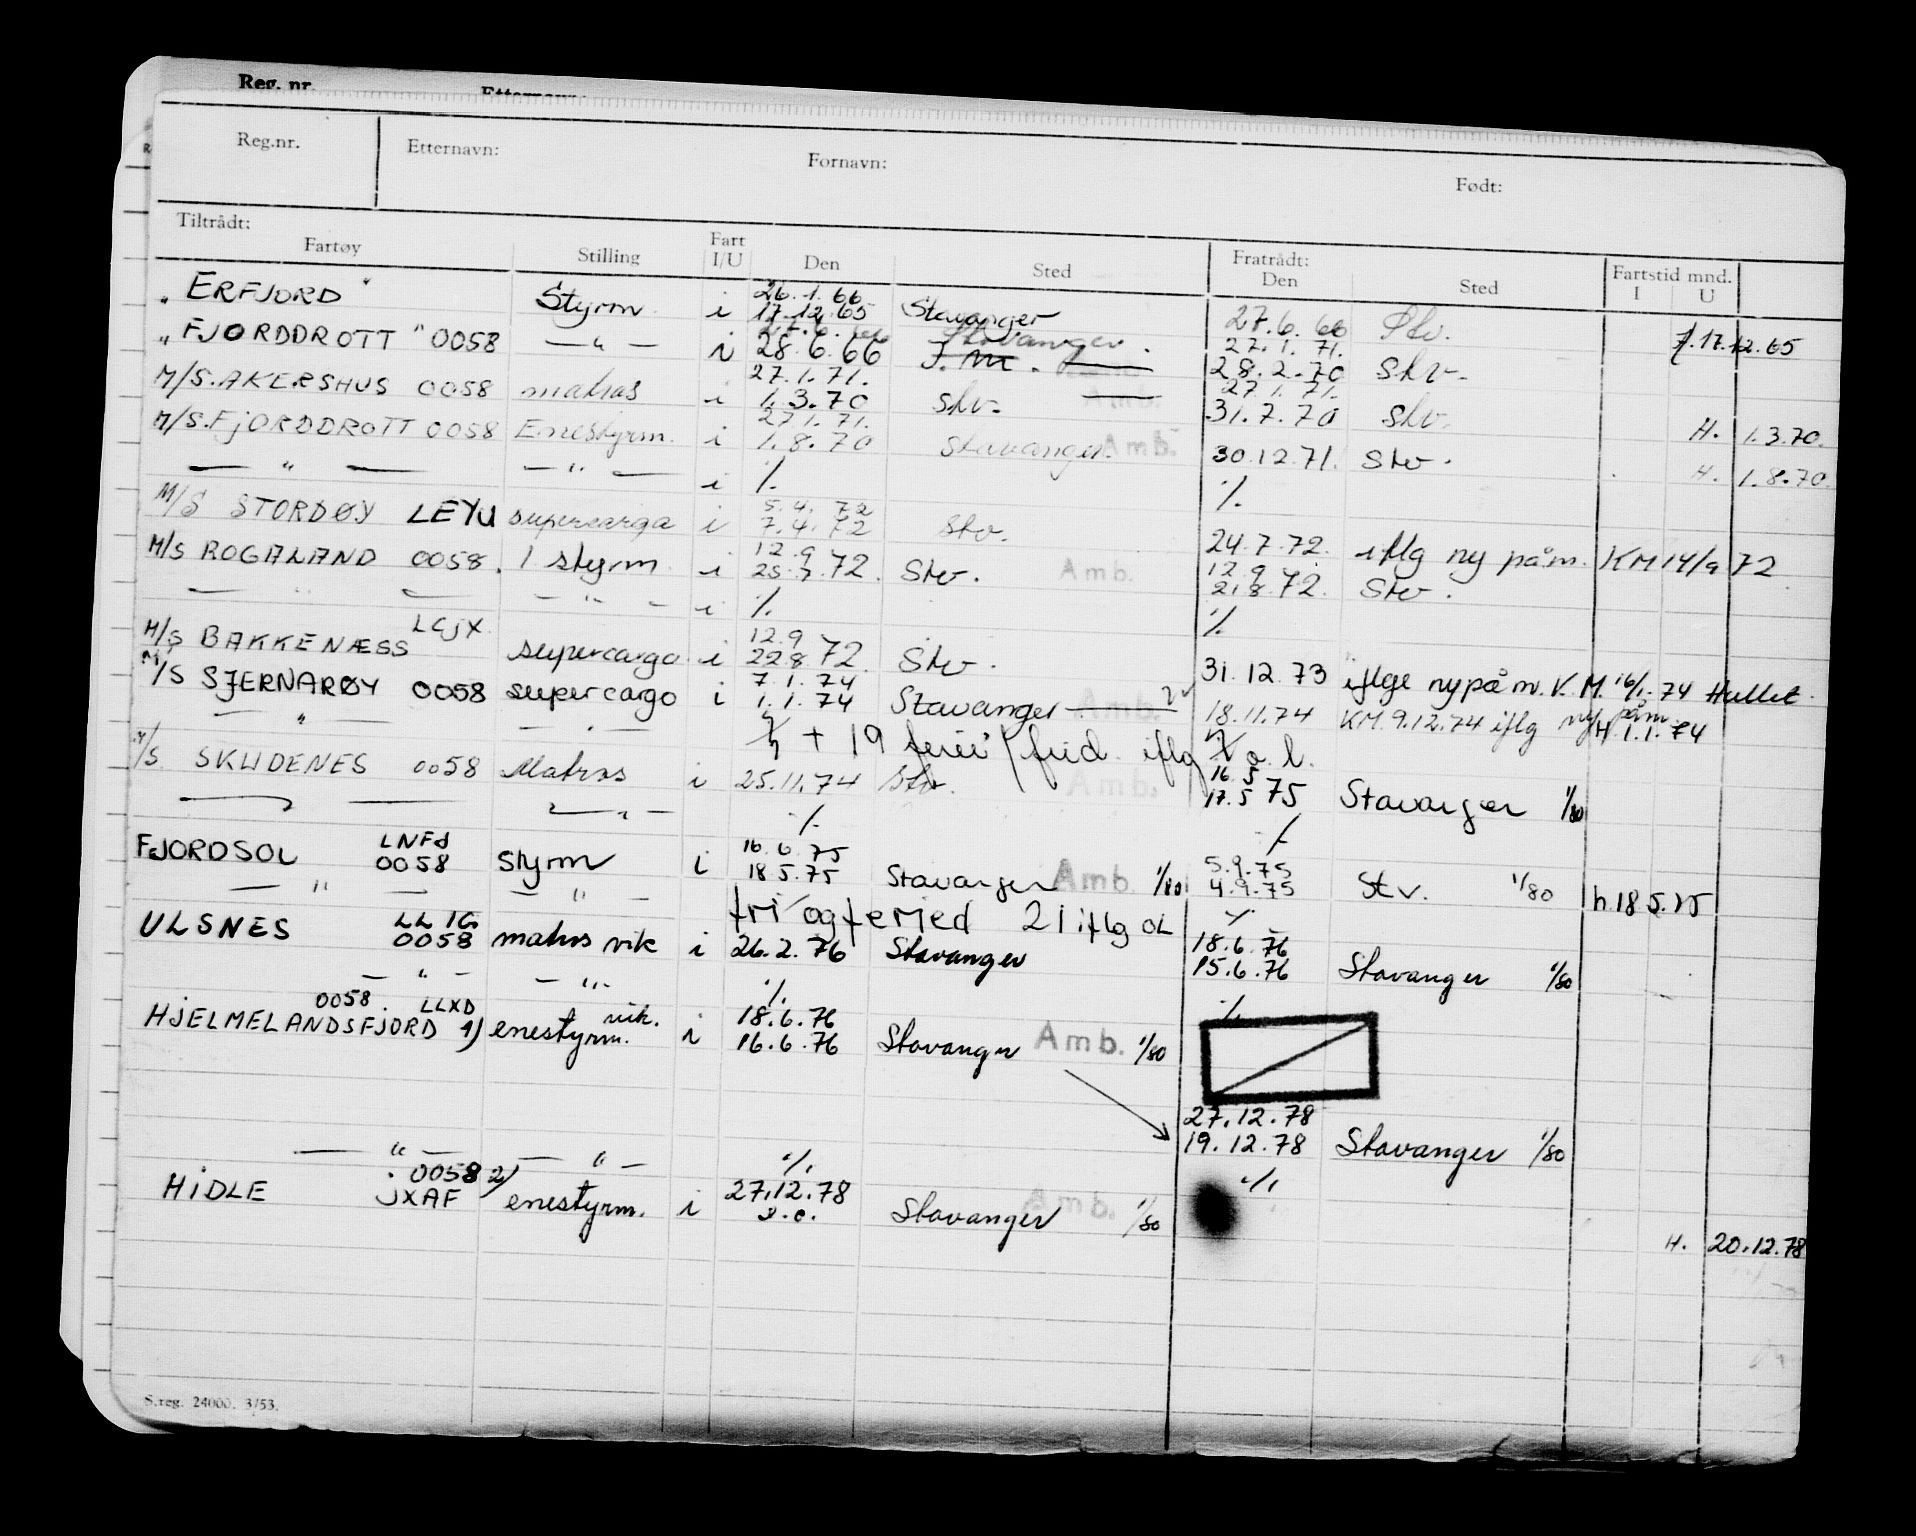 Reg. nr.
Reg.nr. Etternavn: Fornavn: Født:
Tiltrådt: Fratrådt:
Fartøy Stilling Fart I/U Den Sted Den Sted Fartstid mnd. I U
26.1.66
"ERFJORD" Styrm i 17.12.65 Stavanger 27.6.66 Stv. 17.12.65
27.1.71.
"FJORDDROTT" 0058 — " — i 28.6.66 28.2.70 Stv.
27.1.71. 27.1.71.
M/S. AKERSHUS 0058 matros i 1.3.70 Stv. Amb. 31.7.70 Stv. H. 1.3.70.
27.1.71.
M/S. FJORDDROTT 0058 Enestyrm. i 1.8.70 Stavanger. Amb. 30.12.71. Stv. H. 1.8.70.
— " — — " — i ./. ./.
5.4.72
M/S STORDØY LEYU supercargo i 7.4.72 Stv. 24.7.72. iflg ny påm. KM 14/9 72
12.9 12.9
M/S ROGALAND 0058. 1 styrm i 25.7.72. Stv. Amb. 21.8.72. Stv.
— " — — " — i ./. ./.
LCJX 12.9
M/S BAKKENÆSS supercargo i 22.8.72. Stv. 31.12.73 iflge ny påm. K.M. 16/1-74 Hullet.
7.1.74
M/S SJERNARØY 0058 supercargo i 1.1.74 Stavanger Amb. 18.11.74 KM 9.12.74 iflg ny påm H. 1.1.74
— " — — " — ./. + 19 ferie/frid. iflg o.l.
16.5
M/S SKUDENES 0058 Matros i 25.11.74 Stv. Amb. 17.5 75 Stavanger 1/80
— " — — " — ./. ./.
LNFd 16.6.75 5.9.75
FJORDSOL 0058 styrm i 18.5.75 Stavanger Amb. 1/80 4.9.75 Stv. 1/80 h. 18.5.75
— " — — " — fri og feried 21 iflg OL ./.
LLIG 18.6.76
ULSNES 0058 matros vik i 26.2.76 Stavanger 15.6.76 Stavanger 1/80
— " — — " — ./. ./.
0058. LLXD vik. 18.6.76
HJELMELANDSFJORD 1) enestyrm. i 16.6.76 Stavanger Amb. 1/80
27.12.78
19.12.78 Stavanger 1/80
— " — — " — ./. ./.
0058 2) 27.12.78
HIDLE JXAF enestyrm. i s.d. Stavanger Amb. 1/80
H. 20.12.78
S.reg. 24000. 3/53.